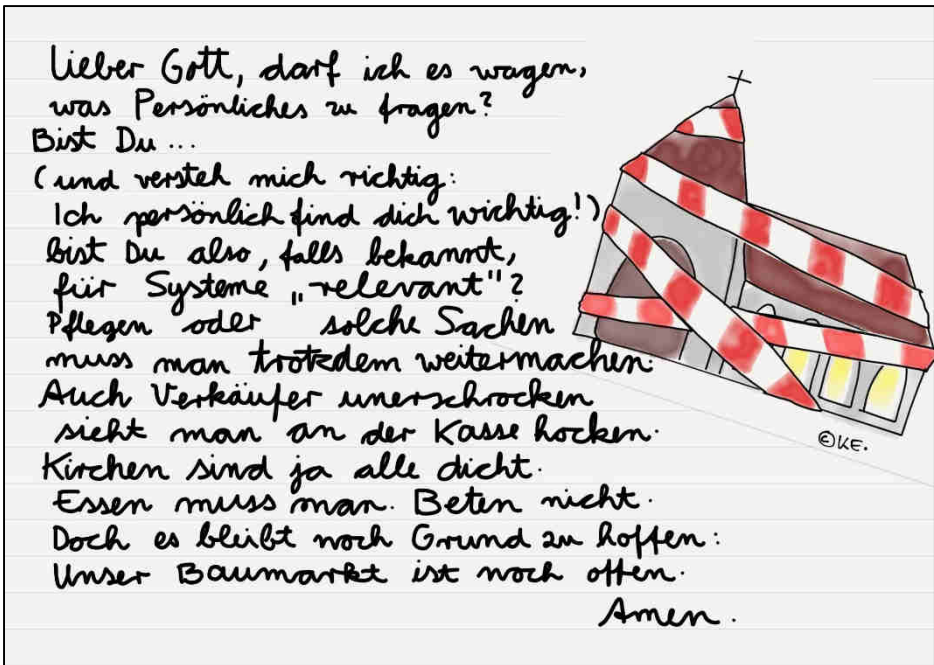 Lieber Gott, darf ich es wagen,
was Persönliches zu fragen?
Bist Du...
(und versteh mich richtig:
Ich persönlich find dich wichtig!)
bist Du also, falls bekannt,
für Systeme „relevant"?
Pflegen oder solche Sachen
muss man trotzdem weitermachen.
Auch Verkäufer unerschrocken
sieht man an der Kasse hocken.
Kirchen sind ja alle dicht.
Essen muss man. Beten nicht.
Doch es bleibt noch Grund zu hoffen:
Unser Baumarkt ist noch offen.
Amen.
©KE.